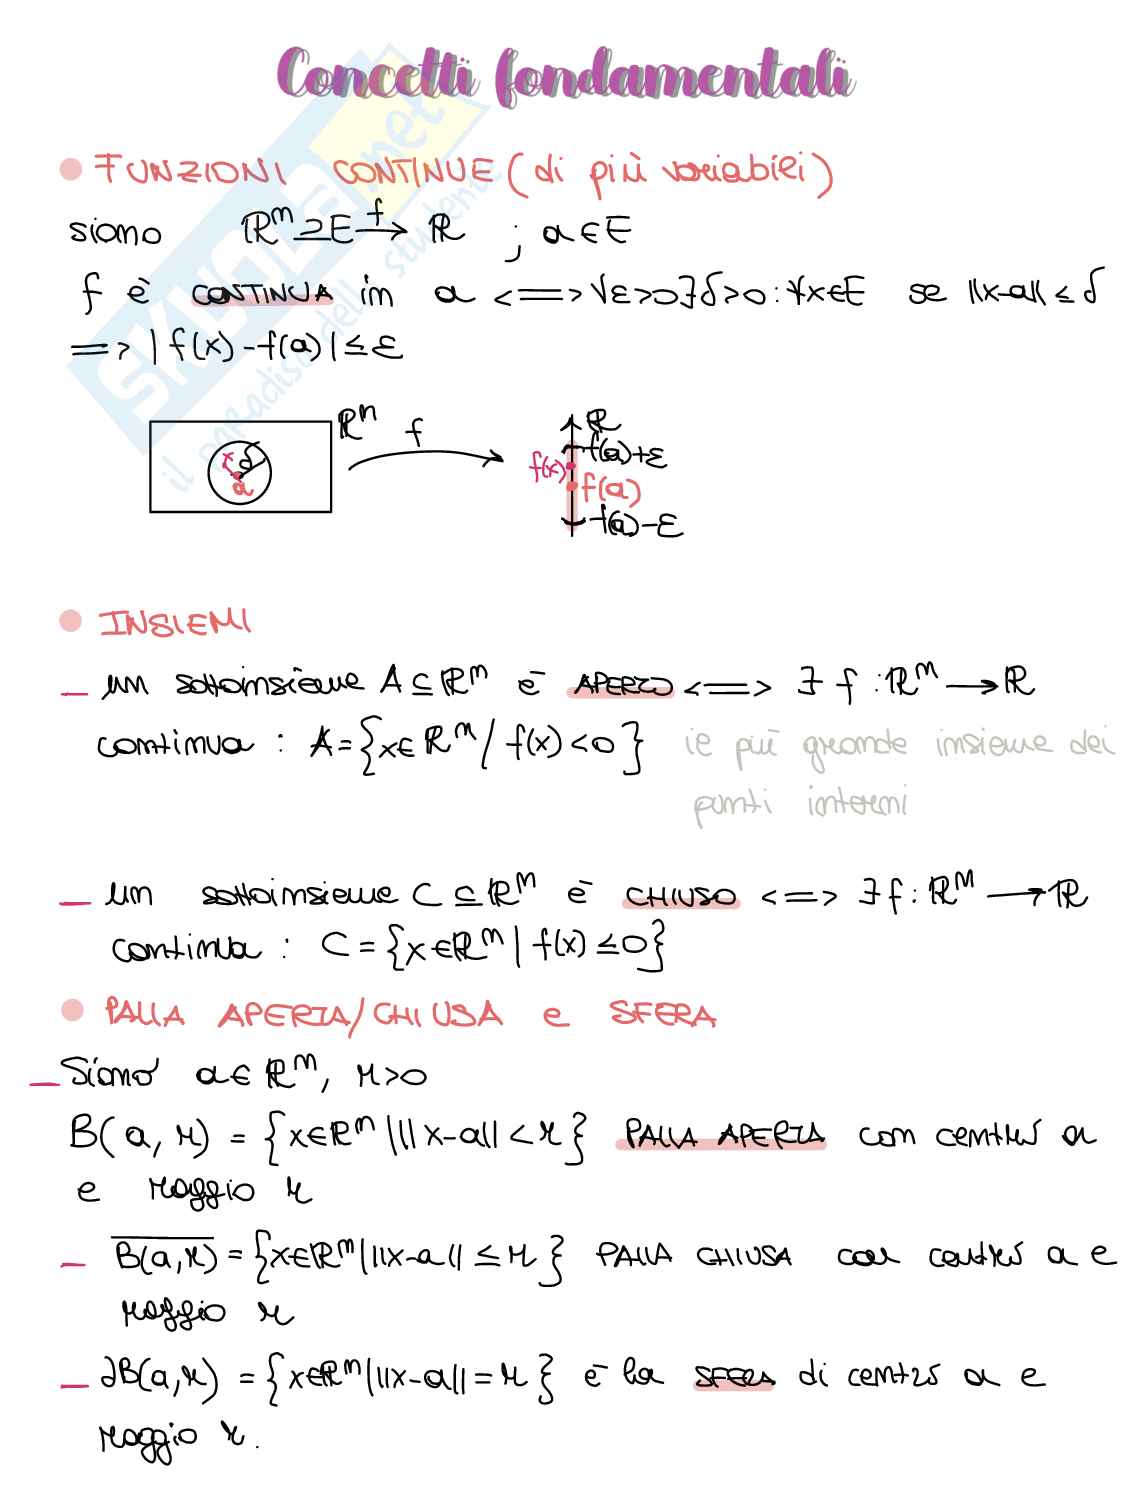 Concetti fondamentali
FUNZIONI CONTINUE (di più variabili)
siano ℝⁿ ⊇ E →ᶠ ℝ ; a ∈ E
f è CONTINUA in a <=> ∀ε>0 ∃δ>0 : ∀x∈E se ||x-a|| ≤ δ
=> | f(x) - f(a) | ≤ ε
ℝⁿ f ℝ
f(a)+ε
x δ f(x)
a f(a)
f(a)-ε
INSIEMI
– un sottoinsieme A ⊆ ℝⁿ è APERTO <=> ∃ f : ℝⁿ → ℝ
continua : A = {x∈ ℝⁿ / f(x) < 0 } il più grande insieme dei
punti interni
– un sottoinsieme C ⊆ ℝⁿ è CHIUSO <=> ∃ f : ℝⁿ → ℝ
continua : C = {x ∈ ℝⁿ | f(x) ≤ 0}
PALLA APERTA/CHIUSA e SFERA
– Siano a ∈ ℝⁿ, r > 0
B(a, r) = {x∈ℝⁿ | ||x-a|| < r} PALLA APERTA con centro a
e raggio r
– B̅(̅a̅,̅r̅)̅ = {x∈ℝⁿ | ||x-a|| ≤ r} PALLA CHIUSA con centro a e
raggio r
– ∂B(a,r) = {x∈ℝⁿ | ||x-a|| = r} è la SFERA di centro a e
raggio r.
SKUOLA.net
il paradiso dello studente